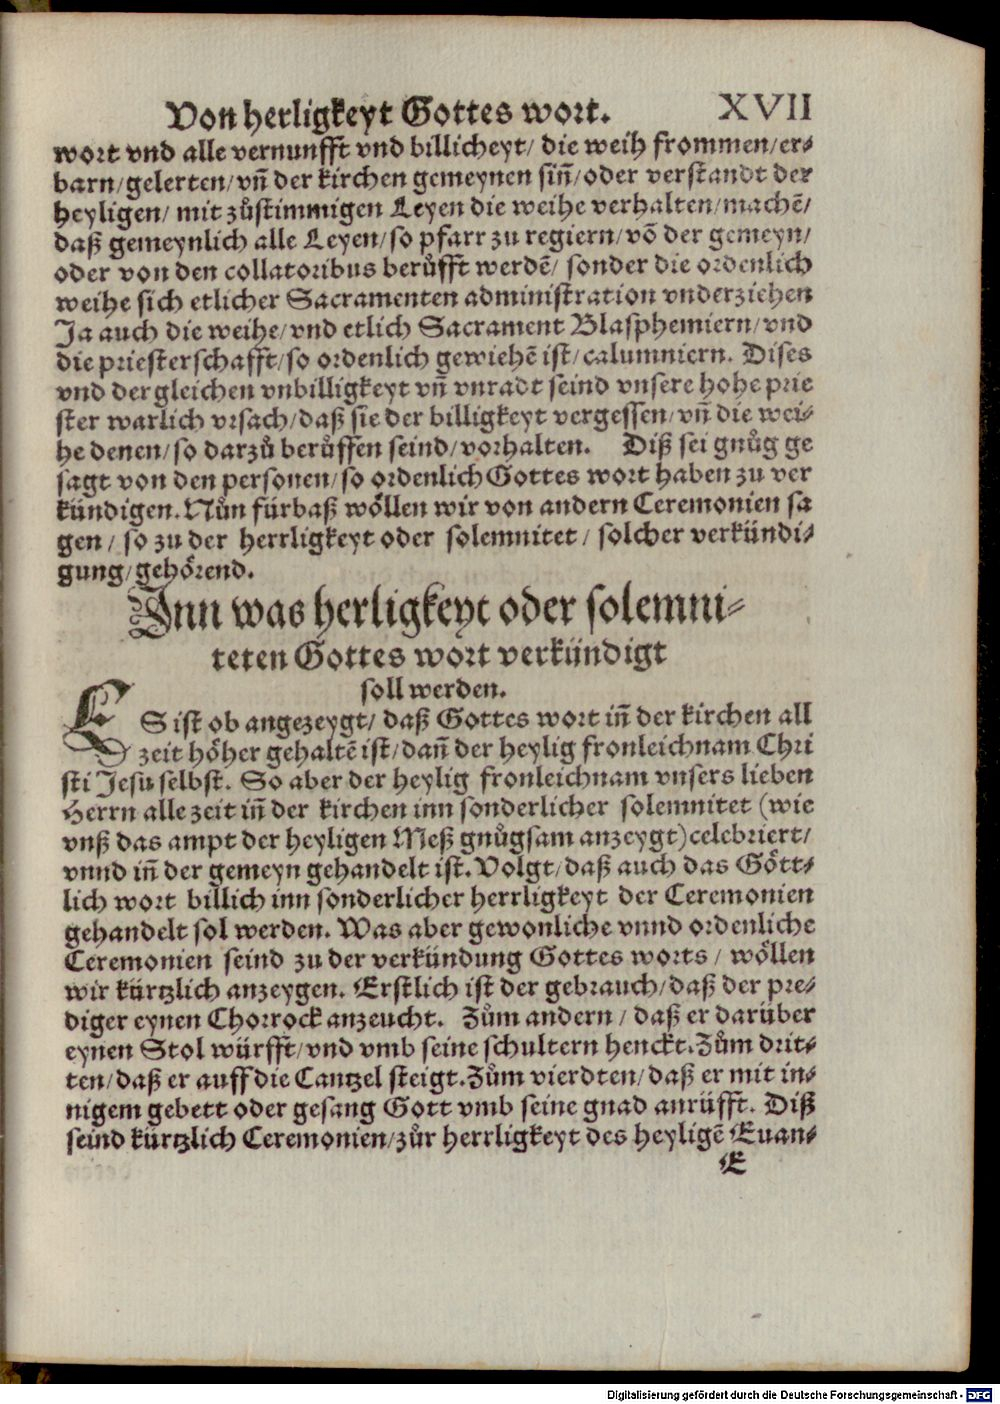 Von herligkeyt Gottes wort. XVII
wort vnd alle vernunfft vnd billicheyt/ die weih frommen/er⸗
barn/gelerten/vñ der kirchen gemeynen siñ/oder verstandt der
heyligen/ mit zůstimmigen Leyen die weihe verhalten/machẽ/
daß gemeynlich alle Leyen/so pfarr zu regiern/võ der gemeyn/
oder von den collatoribus berůfft werdẽ/ sonder die ordenlich
weihe sich etlicher Sacramenten administration vnderziehen
Ja auch die weihe/vnd etlich Sacrament Blasphemiern/vnd
die priesterschafft/so ordenlich gewiehẽ ist/calumniern. Dises
vnd dergleichen vnbilligkeyt vñ vnradt seind vnsere hohe prie
ster warlich vrsach/daß sie der billigkeyt vergessen/vñ die wei⸗
he denen/so darzů berůffen seind/vorhalten. Diß sei gnůg ge
sagt von den personen/so ordenlich Gottes wort haben zu ver
kündigen. Nůn fürbaß wöllen wir von andern Ceremonien sa
gen/ so zu der herrligkeyt oder solemnitet/ solcher verkündi⸗
gung/gehörend.
Inn was herligkeyt oder solemni⸗
teten Gottes wort verkündigt
soll werden.
ES ist ob angezeygt/ daß Gottes wort iñ der kirchen all
zeit höher gehaltẽ ist/dañ der heylig fronleichnam Chri
sti Jesu selbst. So aber der heylig fronleichnam vnsers lieben
Herrn alle zeit iñ der kirchen inn sonderlicher solemnitet (wie
vnß das ampt der heyligen Meß gnůgsam anzeygt) celebriert/
vnnd iñ der gemeyn gehandelt ist. Volgt/daß auch das Gött⸗
lich wort billich inn sonderlicher herrligkeyt der Ceremonien
gehandelt sol werden. Was aber gewonliche vnnd ordenliche
Ceremonien seind zu der verkündung Gottes worts/ wöllen
wir kürtzlich anzeygen. Erstlich ist der gebrauch/daß der pre⸗
diger eynen Chorrock anzeucht. Zům andern/ daß er darüber
eynen Stol würfft/vnd vmb seine schultern henckt. Zům drit⸗
ten/daß er auff die Cantzel steigt. Zům vierdten/daß er mit in⸗
nigem gebett oder gesang Gott vmb seine gnad anrüfft. Diß
seind kürtzlich Ceremonien/zůr herrligkeyt des heyligẽ Euan⸗
E
Digitalisierung gefördert durch die Deutsche Forschungsgemeinschaft - DFG